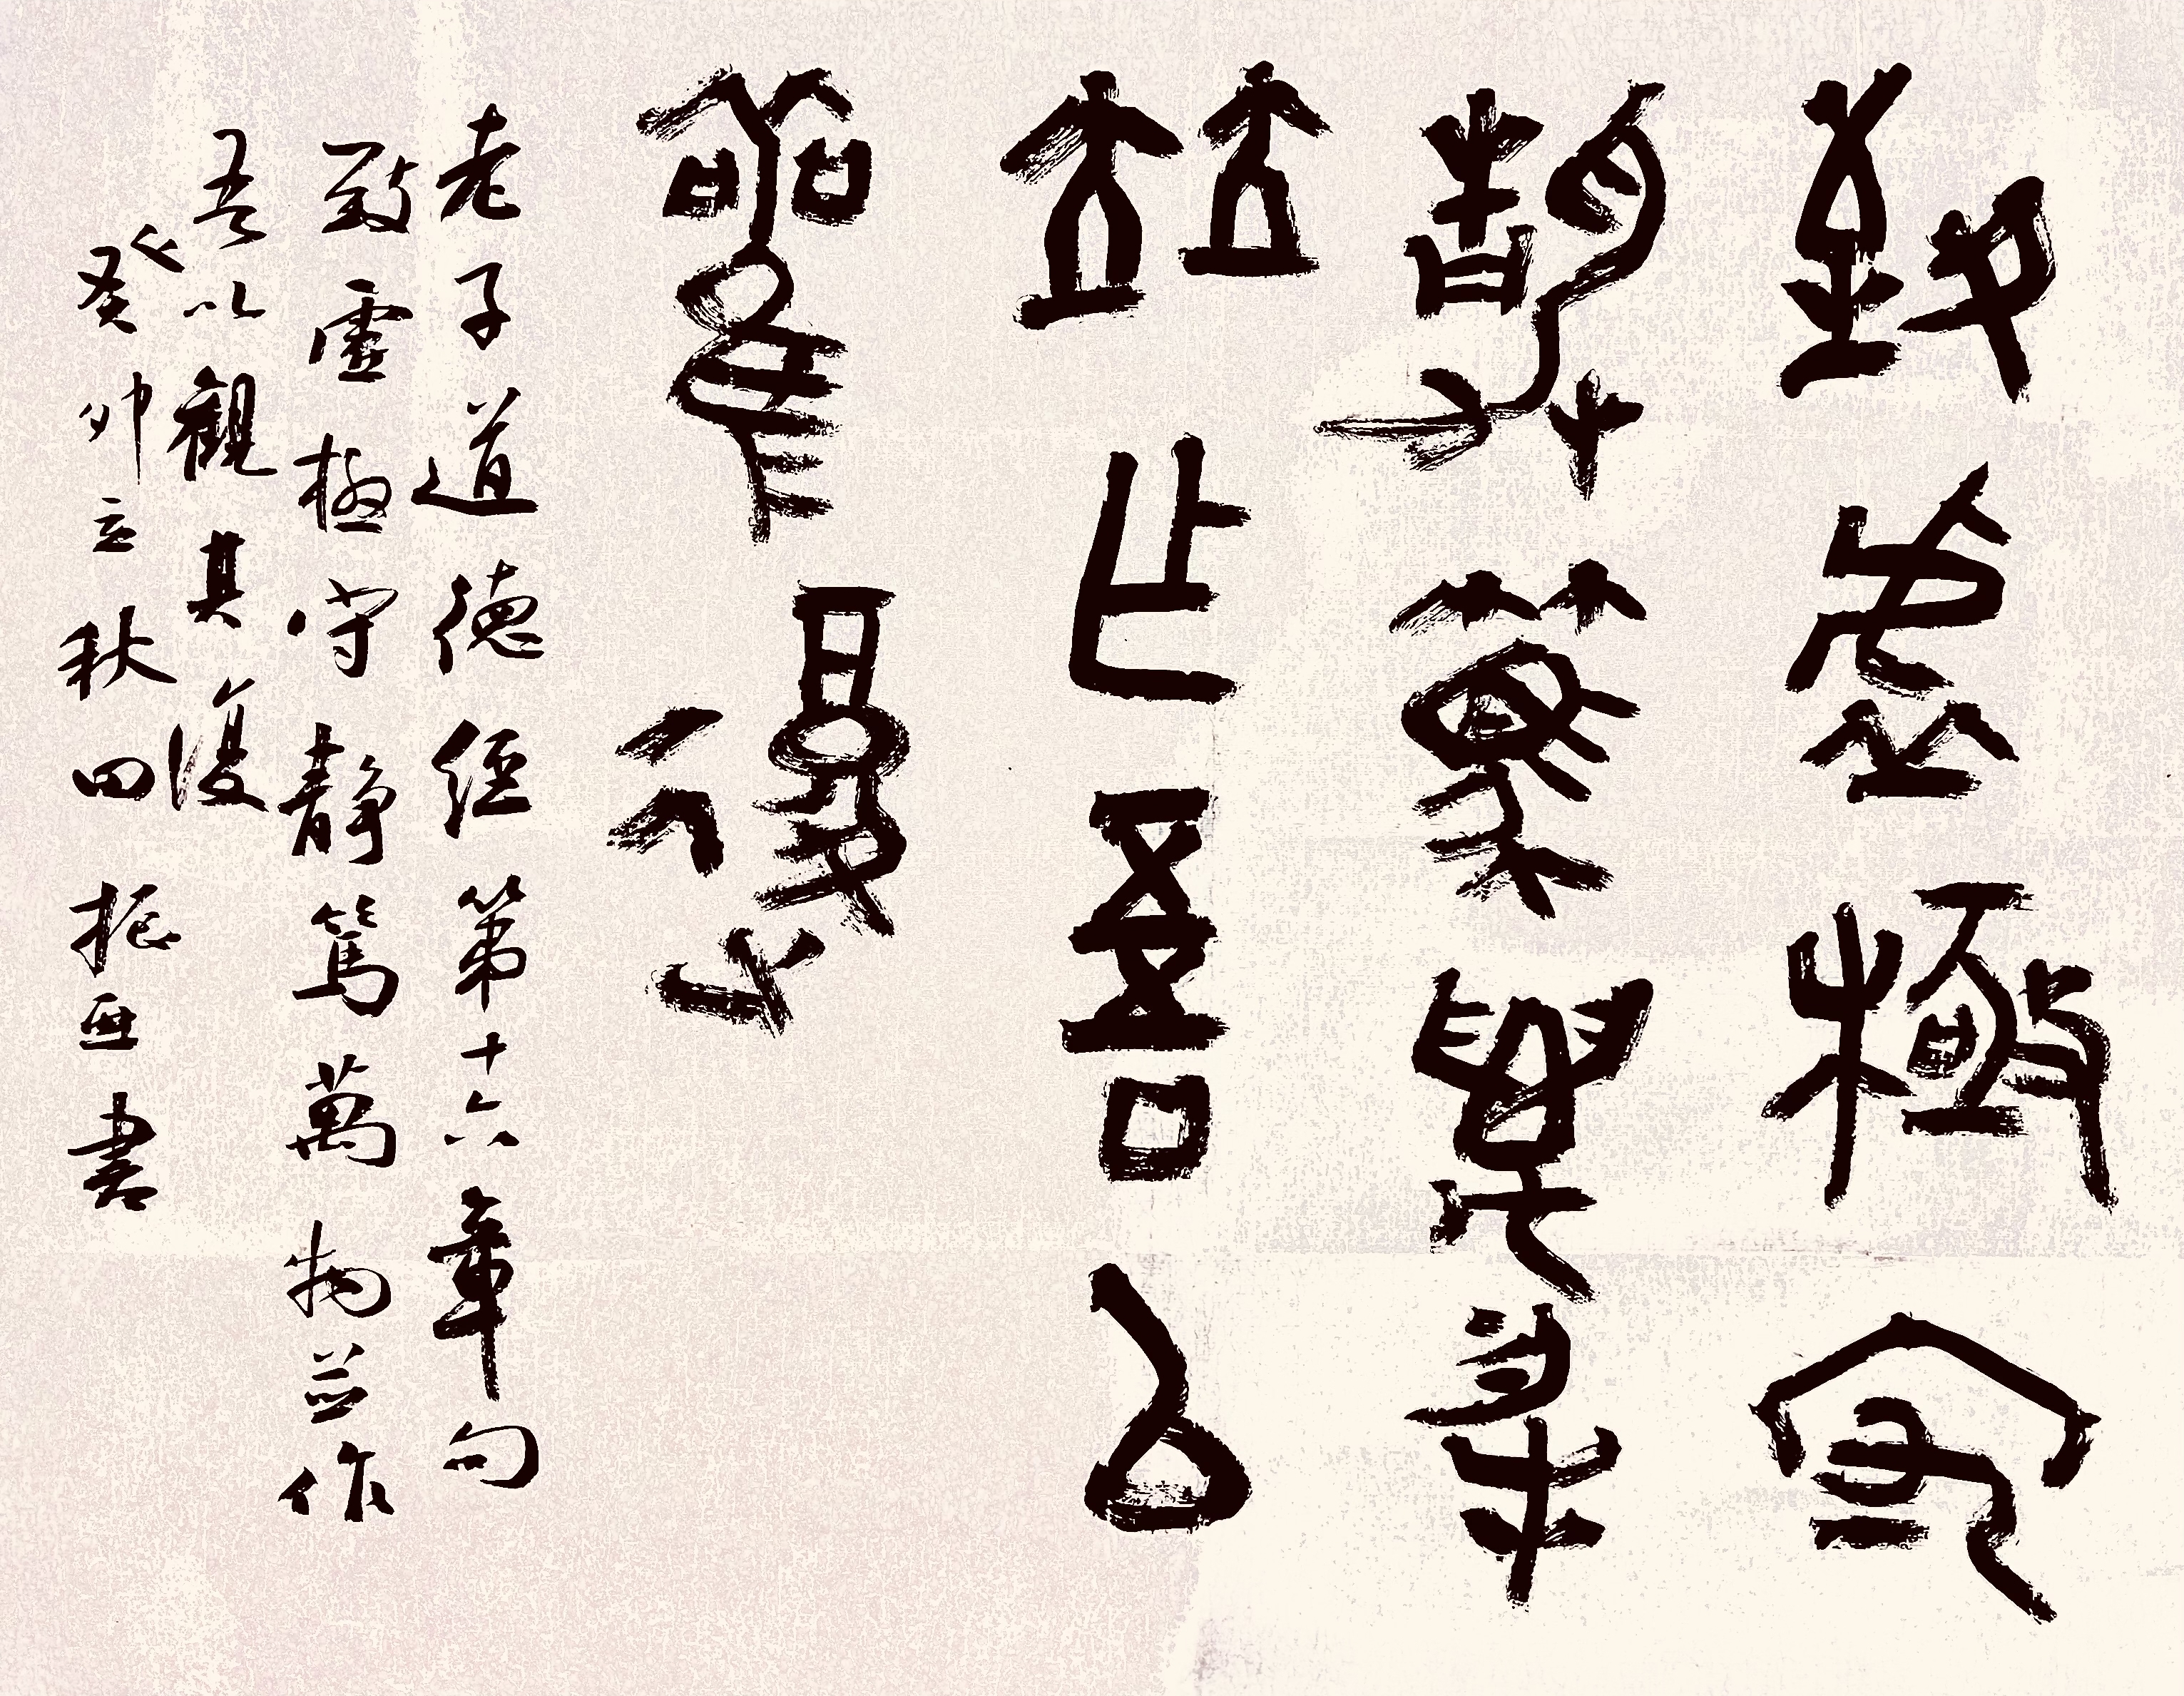 致虛極守
靜篤萬物
竝作吾以
觀復
老子道德經第十六章句
致虛極守靜篤萬物並作
吾以觀其復
癸卯立秋田振亞書